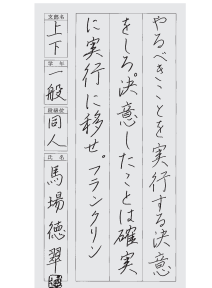 やるべきことを実行する決意
をしろ。決意したことは確実
に実行に移せ。フランクリン
支部名
上下
学年
一般
段級位
同人
氏名
馬場徳翠